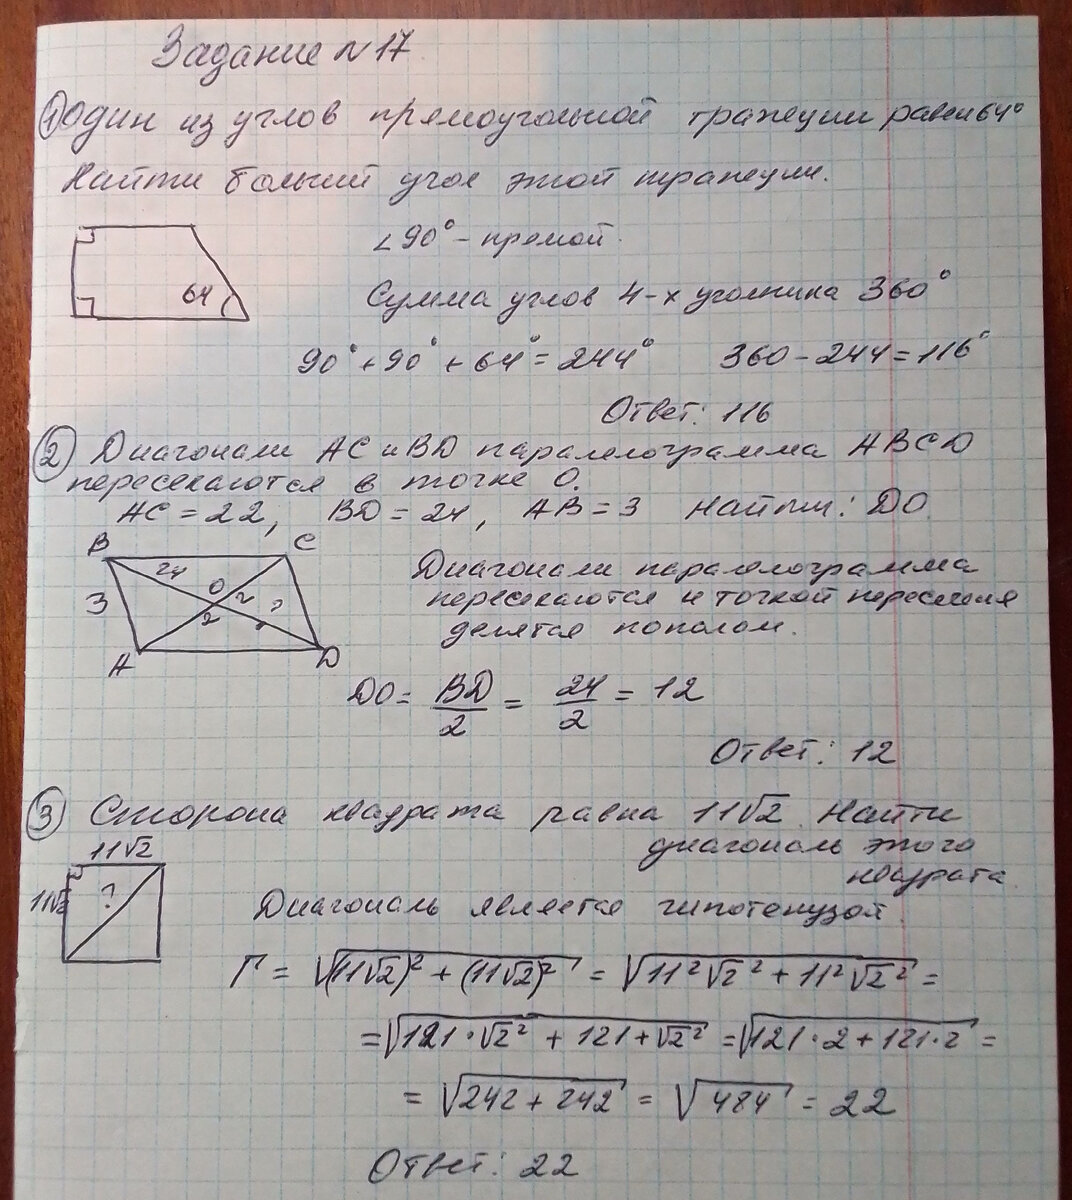 Задание №17
① Один из углов прямоугольной трапеции равен 64°
Найти больший угол этой трапеции.
∠90° - прямой.
64
Сумма углов 4-х угольника 360°
90° + 90° + 64° = 244° 360 - 244 = 116°
Ответ: 116
② Диагонали AC и BD паралелограмма ABCD
пересекаются в точке O.
AC = 22, BD = 24, AB = 3 Найти: DO.
B C
24 O 2 ?
3 2
A D
Диагонали паралелограмма
пересекаются и точкой пересечения
делятся пополам.
DO = BD/2 = 24/2 = 12
Ответ: 12
③ Сторона квадрата равна 11√2. Найти
диагональ этого
квадрата
11√2
11√2 ?
Диагональ является гипотенузой.
Г = √((11√2)² + (11√2)²) = √(11²√2² + 11²√2²) =
= √(121·√2² + 121+√2²) = √(121·2 + 121·2) =
= √(242 + 242) = √484 = 22
Ответ: 22